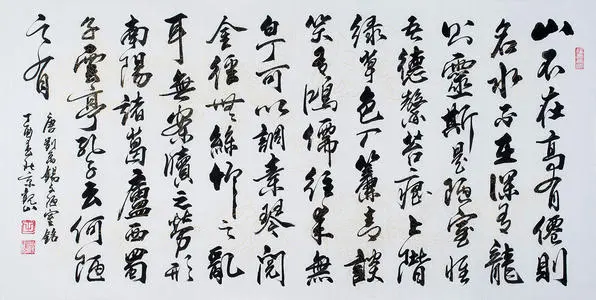 山不在高有僊則
名水不在深有龍
則靈斯是陋室惟
吾德馨苔痕上階
綠草色入簾青談
笑有鴻儒往來無
白丁可以調素琴閱
金經無絲竹之亂
耳無案牘之勞形
南陽諸葛廬西蜀
子雲亭孔子云何陋
之有
唐劉禹錫文陋室銘
丁酉春於京觀山